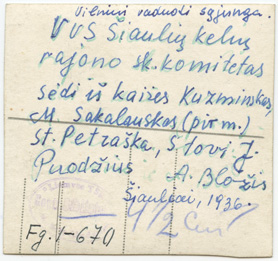 Vilniui vaduoti sąjunga.
VVS Šiaulių kelių
rajono sk. komitetas
sėdi iš kairės Kuzminskas,
M. Sakalauskas (pirm.)
St. Petraška, Stovi J.
Puodžius A. Bložis
Šiauliai, 1936.
Fg. 1-670